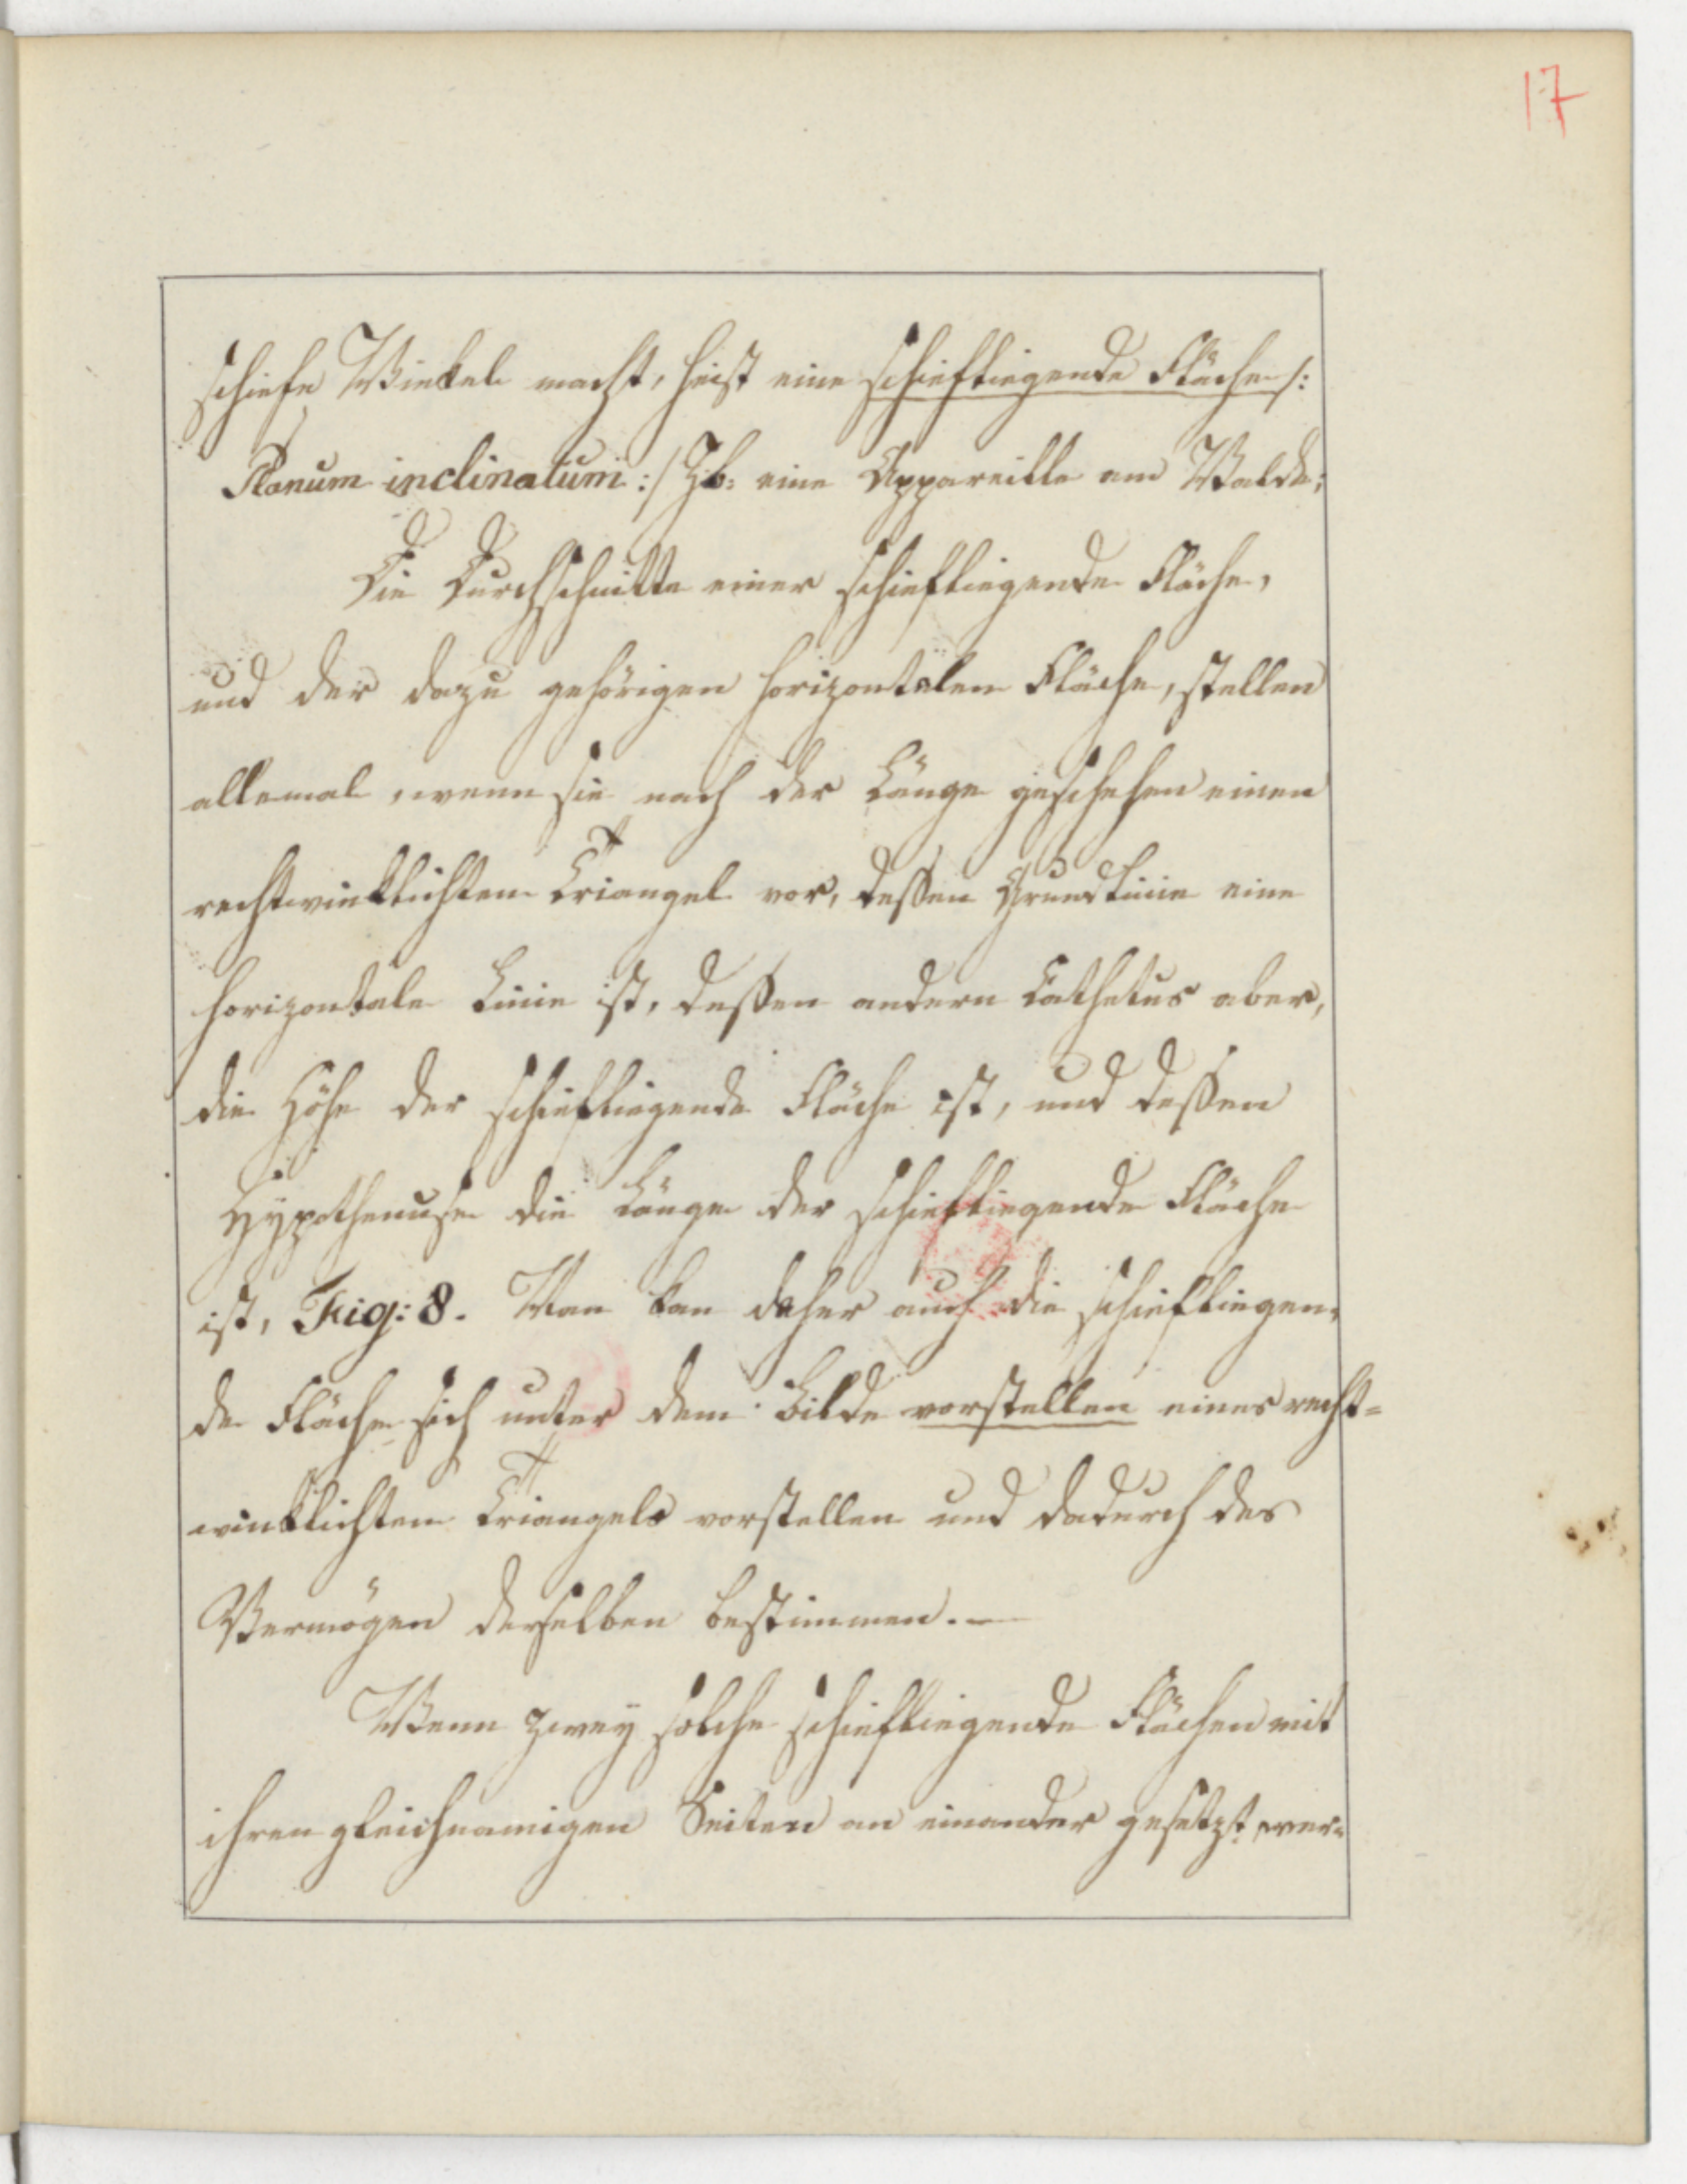 17
schiefe Winkel macht, heist eine schiefliegende Fläche /:
Planum inclinatum :/ Zb: eine Appareille am Walde;
Die Durchschnitte einer schiefliegende Fläche,
und der dazu gehörigen horizontalen Fläche, stellen
allemal, wenn sie nach der Länge geschehen einen
rechtwinklichten Triangel vor, dessen Grundlinie eine
horizontale Linie ist, dessen andern Cathetus aber,
die Höhe der schiefliegende Fläche ist, und dessen
Hypothenuse die Länge der schiefliegende Fläche
ist, Fig: 8. Man kan daher auch die schiefliegen,
de Fläche sich unter dem Bilde vorstellen eines recht=
winklichten Triangels vorstellen und dadurch das
Vermögen derselben bestimmen. —
Wenn zwey solche schiefliegende Flächen mit
ihren gleichnamigen Seiten an einander gesetzt wer=